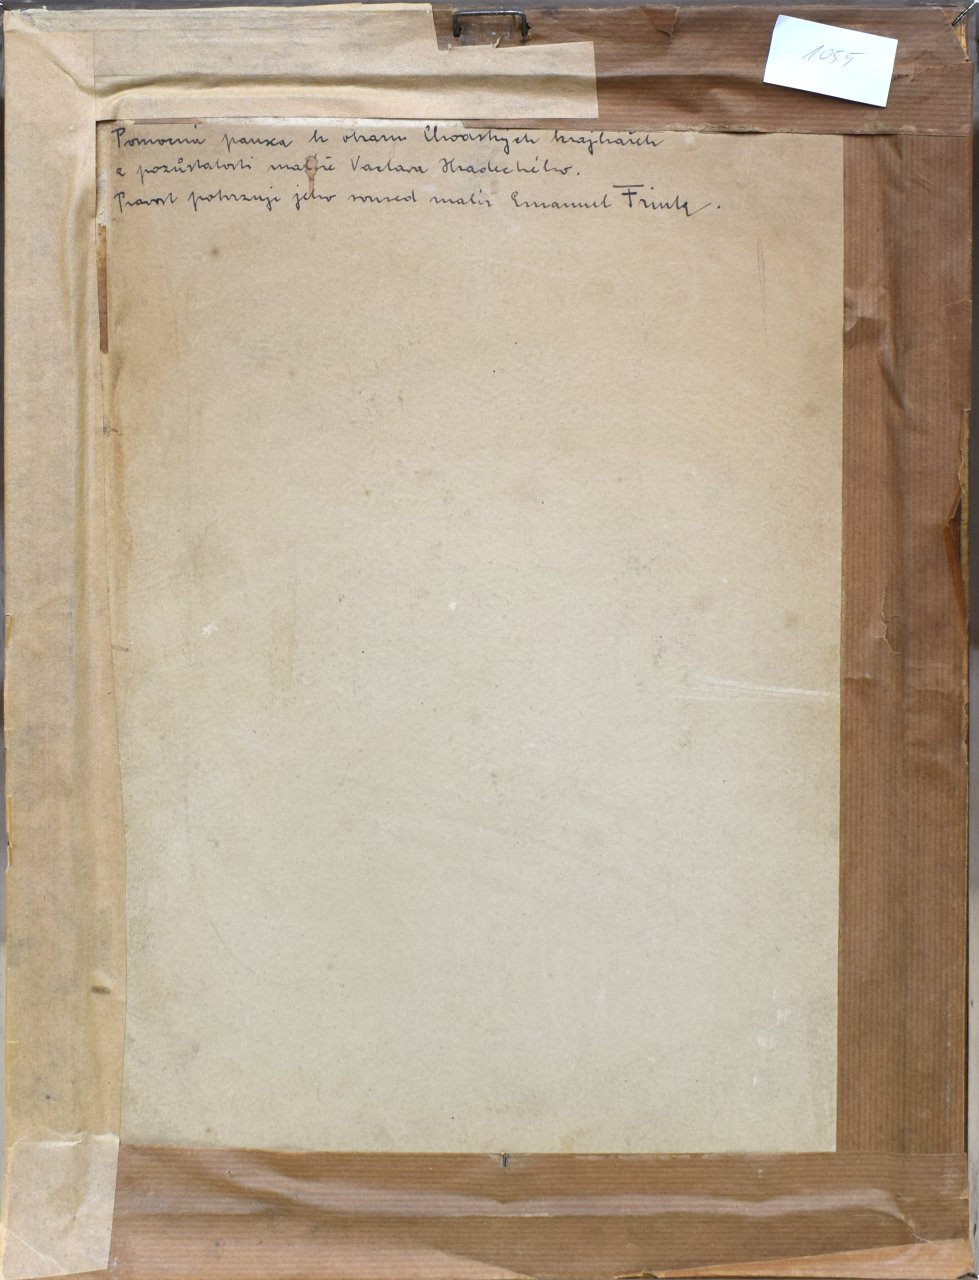 1055
Pomocná pauza k obrazu Chodských krajkářek
z pozůstalosti malíře Václava Hradeckého.
Pravost potvrzuje jeho soused malíř Emanuel